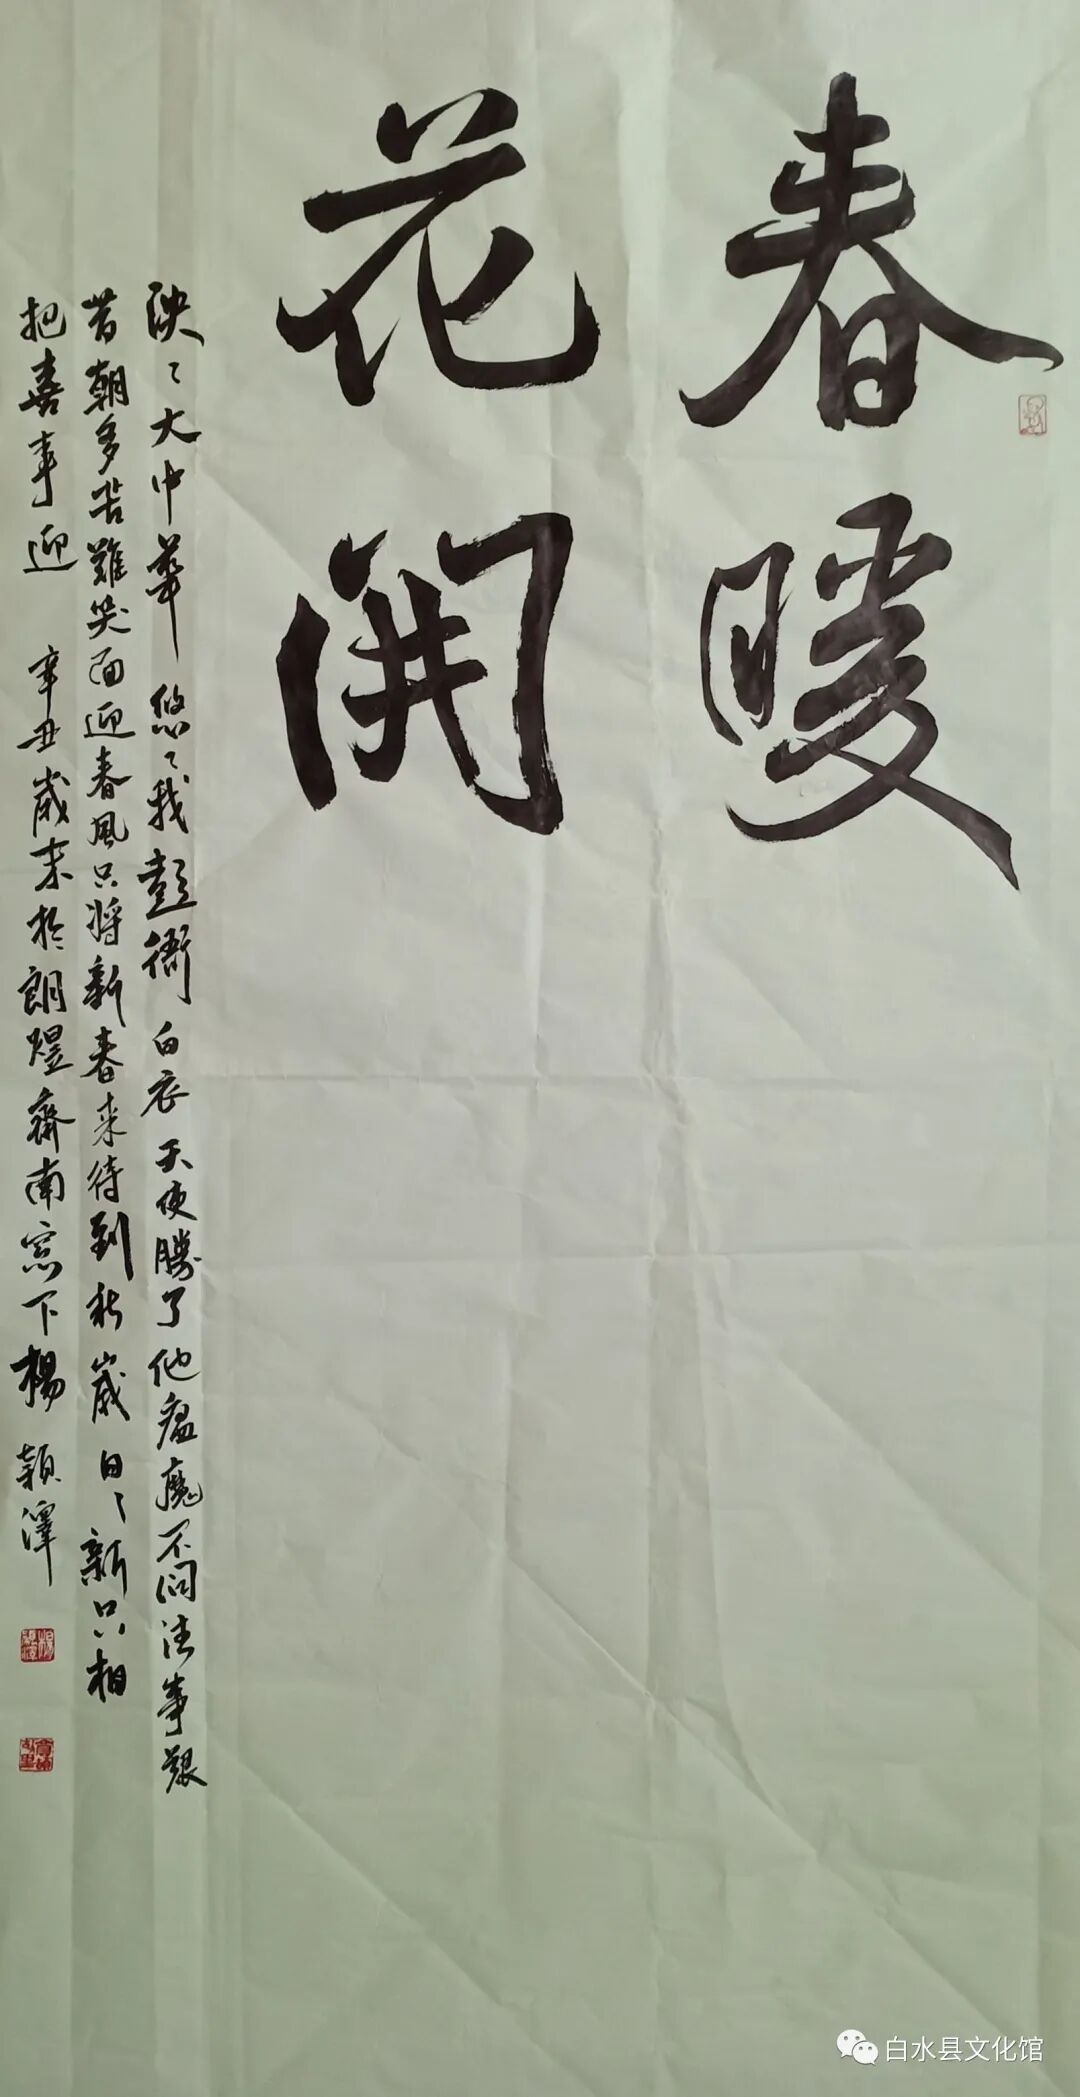 春暖
花開
泱〻大中華悠〻我彭衙白衣天使勝了他瘟魔不问法事艱
昔朝多苦難笑面迎春風只將新春来待到秋歲日〻新只相
把喜事迎 辛丑歲末於朗煜齋南窓下楊穎澤
白水县文化馆